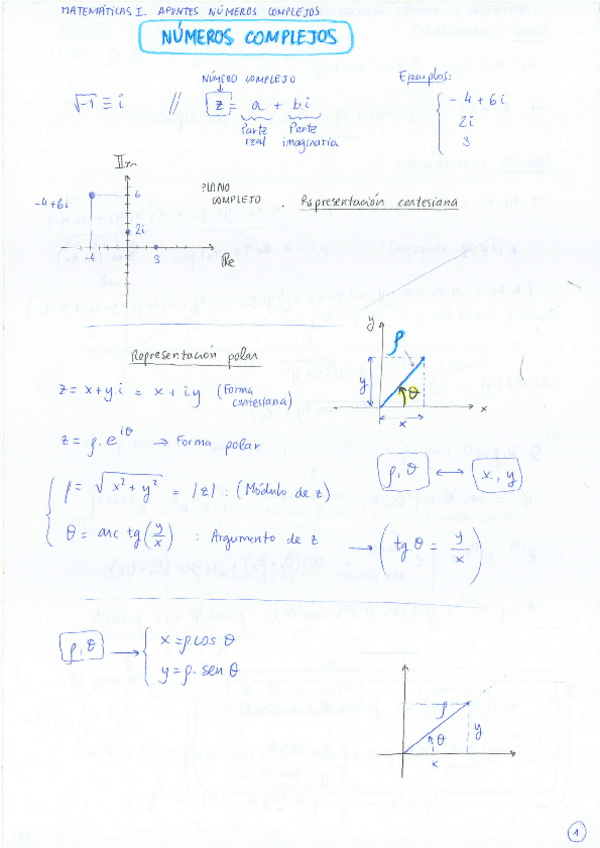 MATEMÁTICAS I. APUNTES NÚMEROS COMPLEJOS
NÚMEROS COMPLEJOS
NÚMERO COMPLEJO
Ejemplos:
√-1 ≡ i // z = a + b.i
Parte real Parte imaginaria
- 4 + 6i
2i
3
Im
-4+6i
6
2i
-4
3
Re
PLANO COMPLEJO . Representación cartesiana
Representación polar
z = x+y.i = x + iy (Forma cartesiana)
z = ρ.e^{iθ} → Forma polar
ρ = √x²+y² = |z| : (Módulo de z)
θ = arc tg(y/x) : Argumento de z → (tg θ = y/x)
y
ρ
y
θ
x
x
ρ,θ ↔ x,y
ρ,θ → x = ρ cos θ
y = ρ. sen θ
ρ
θ
y
x
1